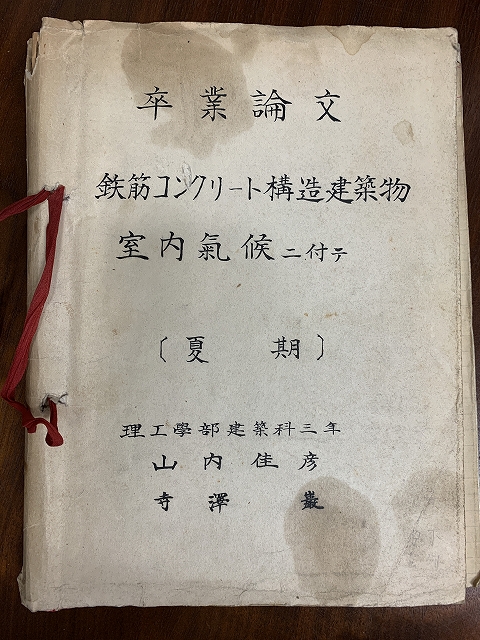 卒業論文
鉄筋コンクリート構造建築物
室内氣候ニ付テ
〔夏期〕
理工學部建築科三年
山内佳彦
寺澤巌